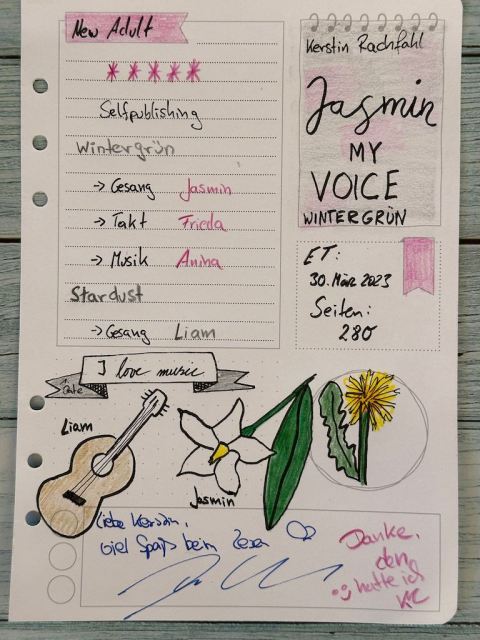 New Adult
Selfpublishing
Wintergrün
→ Gesang Jasmin
→ Takt Frieda
→ Musik Anina
Stardust
→ Gesang Liam
Kerstin Rachfahl
Jasmin
MY
VOICE
WINTERGRÜN
ET:
30. März 2023
Seiten:
280
I love music
Liam
Jasmin
Liebe Kerstin,
viel Spaß beim Lesen
Danke,
den
hatte ich